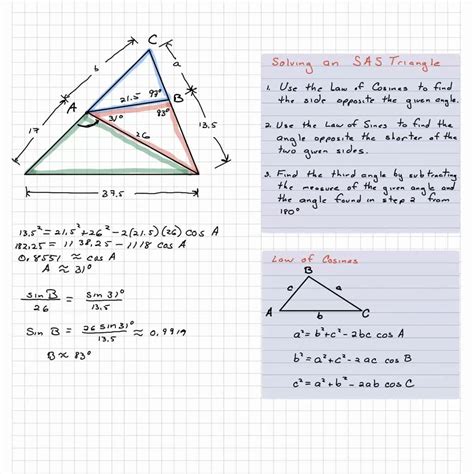 C
b
a
A
21.5
93°
B
31°
83°
17
26
13.5
37.5
13.5² = 21.5² + 26² - 2(21.5)(26) cos A
182.25 = 1138.25 - 1118 cos A
0.8551 ≈ cos A
A ≈ 31°
sin B / 26 = sin 31° / 13.5
sin B = 26 sin 31° / 13.5 ≈ 0.9919
B ≈ 83°
Solving an SAS Triangle
1. Use the Law of Cosines to find
the side opposite the given angle.
2. Use the Law of Sines to find the
angle opposite the shorter of the
two given sides.
3. Find the third angle by subtracting
the measure of the given angle and
the angle found in step 2 from
180°
Law of Cosines
B
c
a
A
b
C
a² = b² + c² - 2bc cos A
b² = a² + c² - 2ac cos B
c² = a² + b² - 2ab cos C